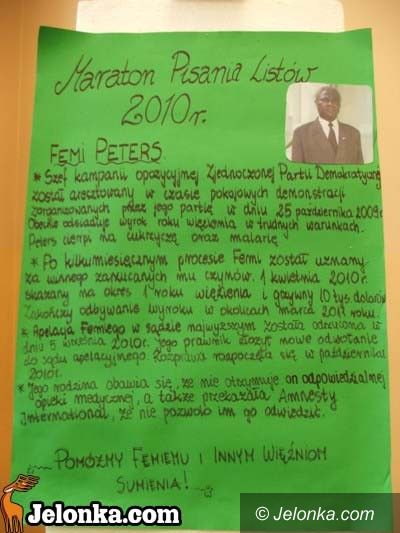 Maraton Pisania Listów
2010r.
FEMI PETERS
* Szef kampanii opozycyjnej Zjednoczonej Partii Demokratycznej
został aresztowany w czasie pokojowych demonstracji
zorganizowanych przez jego partię w dniu 25 października 2009r.
Obecnie odsiaduje wyrok roku więzienia w trudnych warunkach.
Peters cierpi na cukrzycę oraz malarię
* Po kilkumiesięcznym procesie Femi został uznany
za winnego zarzucanych mu czynów. 1 kwietnia 2010r.
skazany na okres 1 roku więzienia i grzywny 10 tys dolarów
Zakończy odbywanie wyroku w okolicach marca 2011 roku.
* Apelacja Femiego w sądzie najwyższym została odrzucona w
dniu 5 września 2010r. Jego prawnik złożył nowe odwołanie
do sądu apelacyjnego. Rozprawa rozpoczęła się w październiku
2010r.
* Jego rodzina obawia się, że nie otrzymuje on odpowiedzialnej
opieki medycznej, a także przekazała Amnesty
International, że nie pozwolo im go odwiedzić.
POMÓŻMY FEMIEMU I INNYM WIĘŹNIOM
SUMIENIA!
Jelonka.com
© Jelonka.com